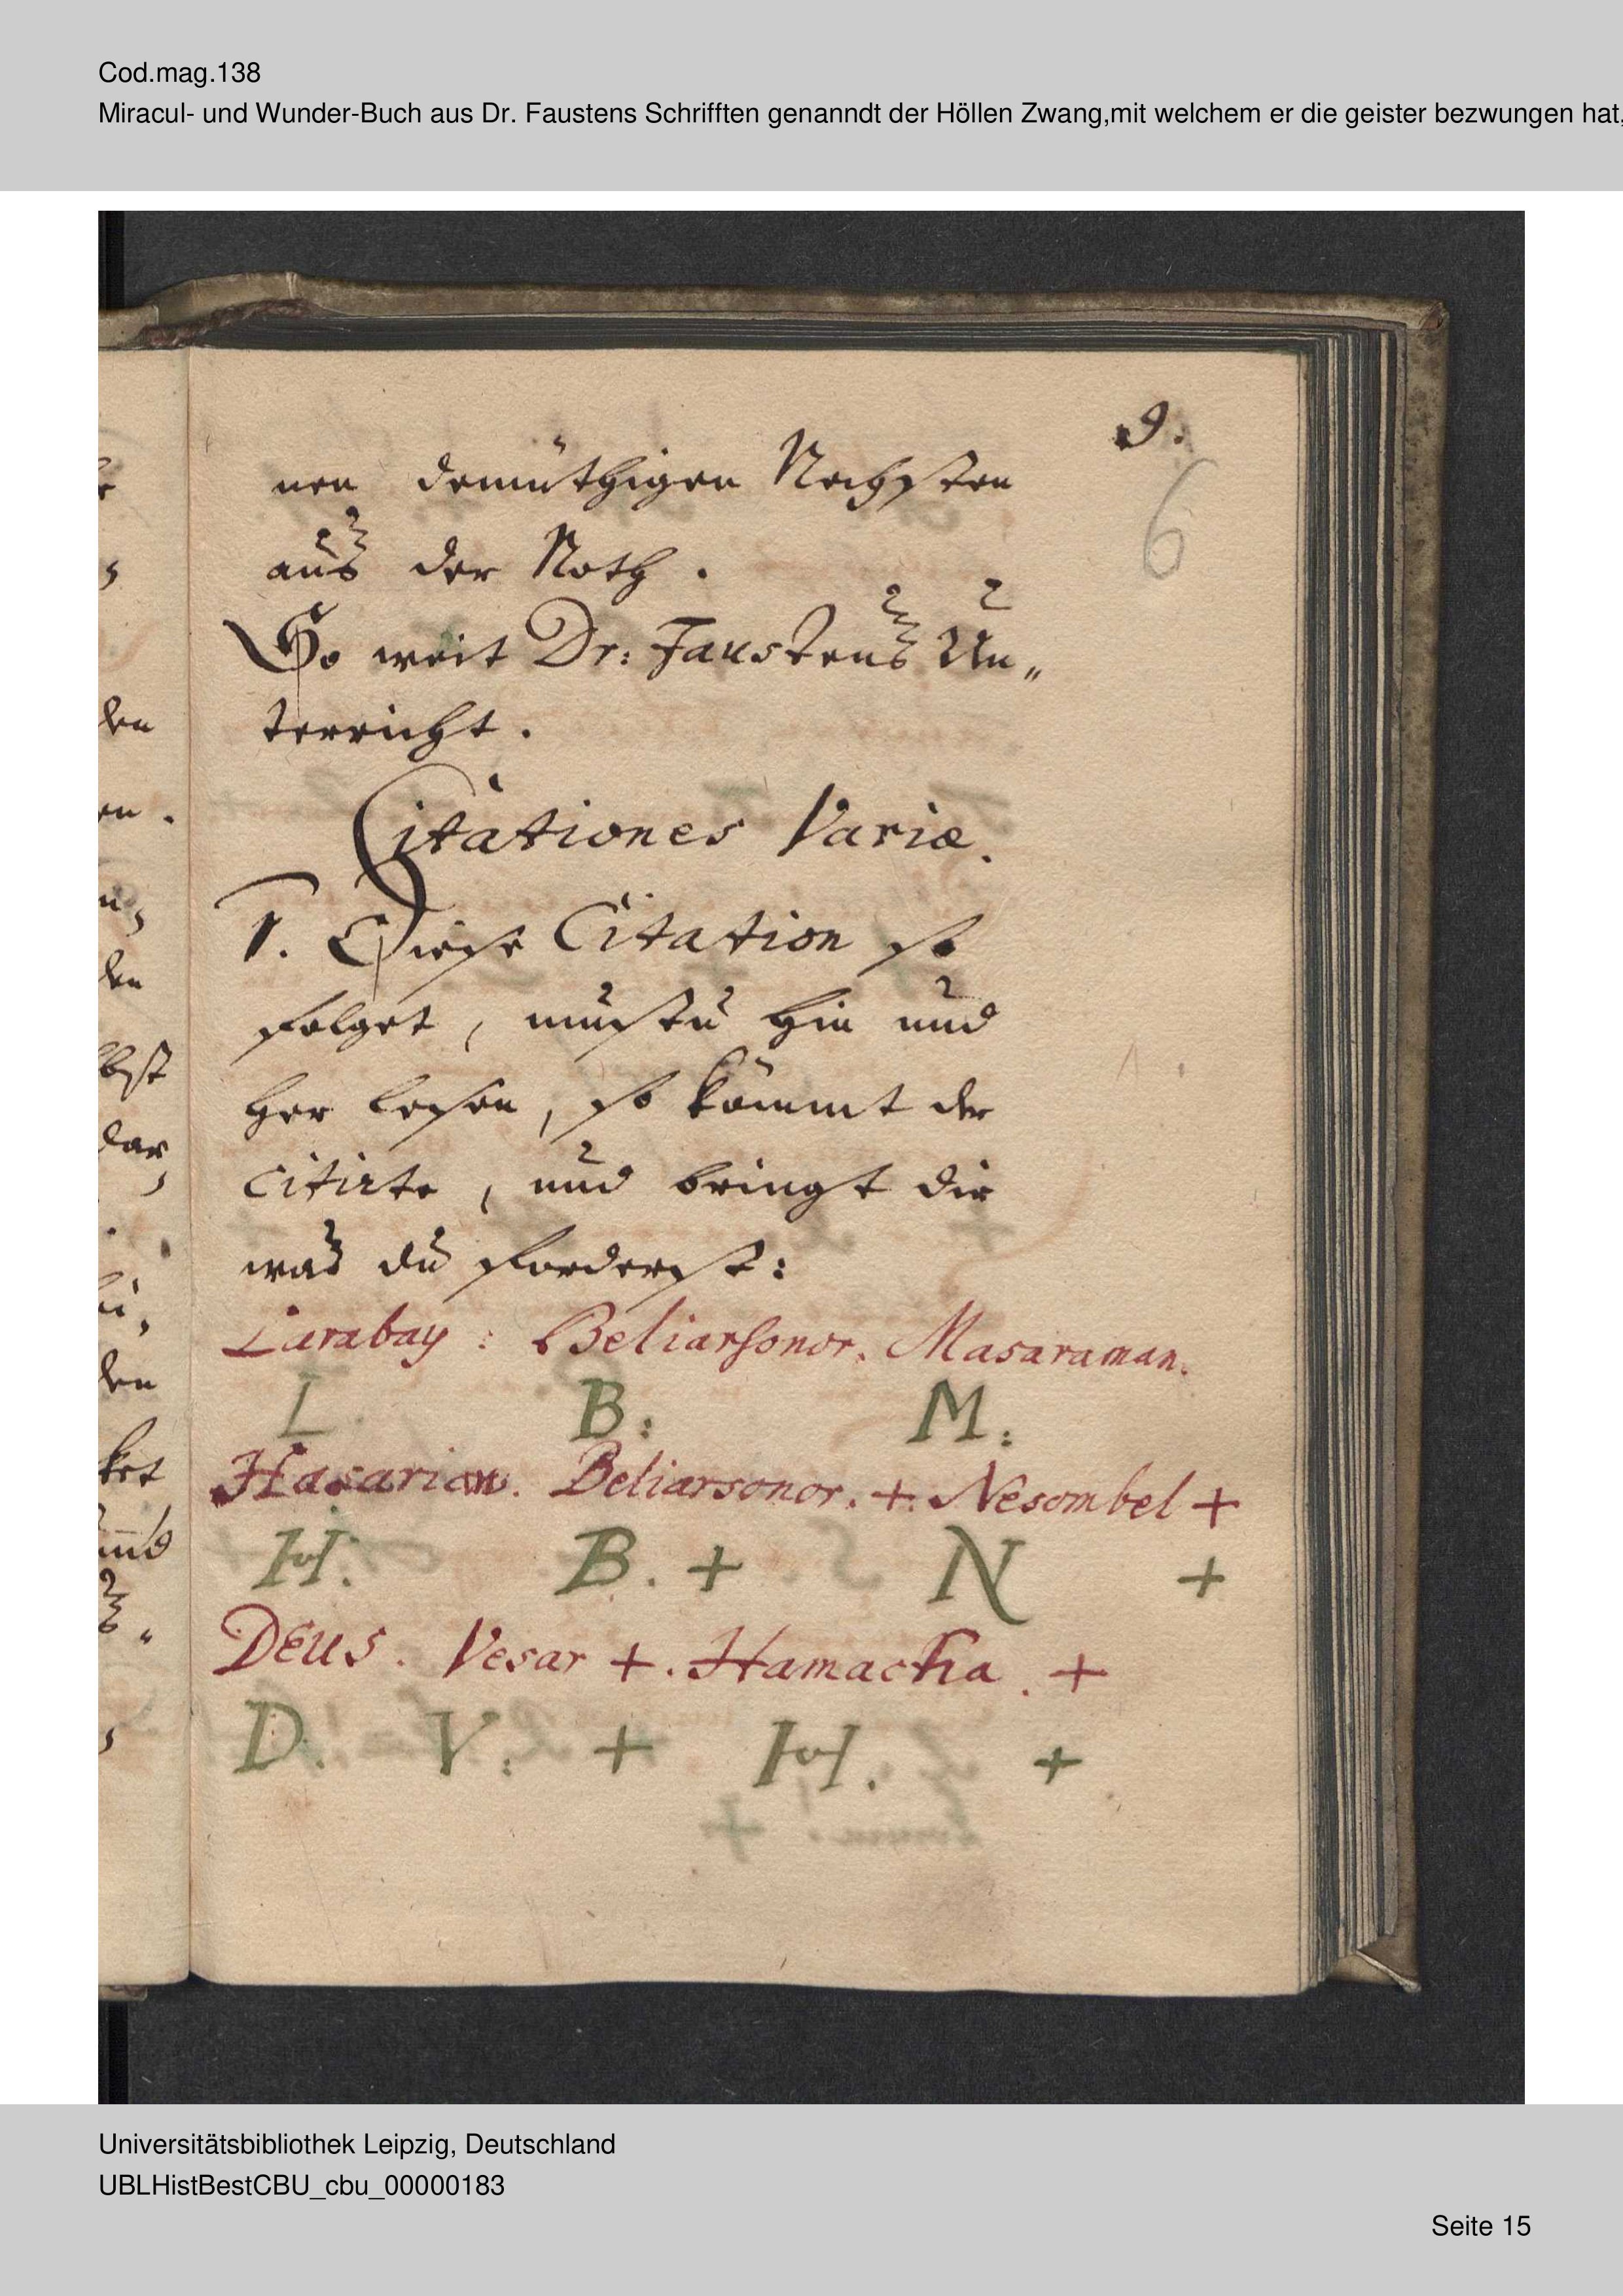 Cod.mag.138
Miracul- und Wunder-Buch aus Dr. Faustens Schrifften genanndt der Höllen Zwang,mit welchem er die geister bezwungen hat,
9.
6
nen demüthigen Nechsten
aus der Noth.
So weit Dr: Faustens Un„
terricht.
Citationes Variæ.
1. Diese Citation so
folget, mustu hin und
her lesen, so kömmt der
citirte, und bringt dir
was du forderst:
Larabay: Beliarsonor. Masaraman.
L. B: M:
Hasarian. Beliarsonor. + Nesombel +
H. B. + N +
DEus. Vesar +. Hamacha. +
D. V: + H. +
Universitätsbibliothek Leipzig, Deutschland
UBLHistBestCBU_cbu_00000183
Seite 15